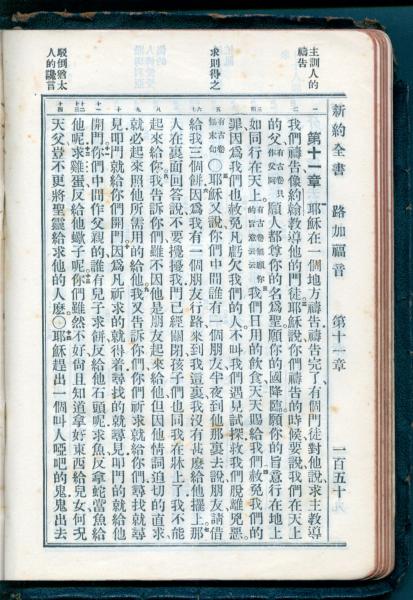 新約全書 路加福音 第十一章 一百五十九
主訓人的
禱告
求則得之
駁倒猶太
人的讒言
第十一章 耶穌在一個地方禱告禱告完了有個門徒對他說求主教導
我們禱告像約翰教導他的門徒耶穌說你們禱告的時候要說我們在天上
的父有古卷只作父阿願人都尊你的名為聖願你的國降臨願你的旨意行在地上
如同行在天上有古卷無願你的旨意云云我們日用的飲食天天賜給我們赦免我們的
罪因為我們也赦免凡虧欠我們的人不叫我們遇見試探救我們脫離兇惡
有古卷無末句○耶穌又說你們中間誰有一個朋友半夜到他那裏去說朋友請借
給我三個餅因為我有一個朋友行路來到我這裏我沒有甚麼給他擺上那
人在裏面回答說不要攪擾我門已經關閉孩子們也同我在牀上了我不能
起來給你我告訴你們雖不因他是朋友起來給他但因他情詞迫切的直求
就必起來照他所需用的給他我又告訴你們你們祈求就給你們尋找就尋
見叩門就給你們開門因為凡祈求的就得着尋找的就尋見叩門的就給他
開門你們中間作父親的誰有兒子求餅反給他石頭呢求魚反拿蛇當魚給
他呢求雞蛋反給他蠍子呢你們雖然不好尚且知道拿好東西給兒女何況
天父豈不更將聖靈給求他的人麼○耶穌趕出一個叫人啞吧的鬼鬼出去